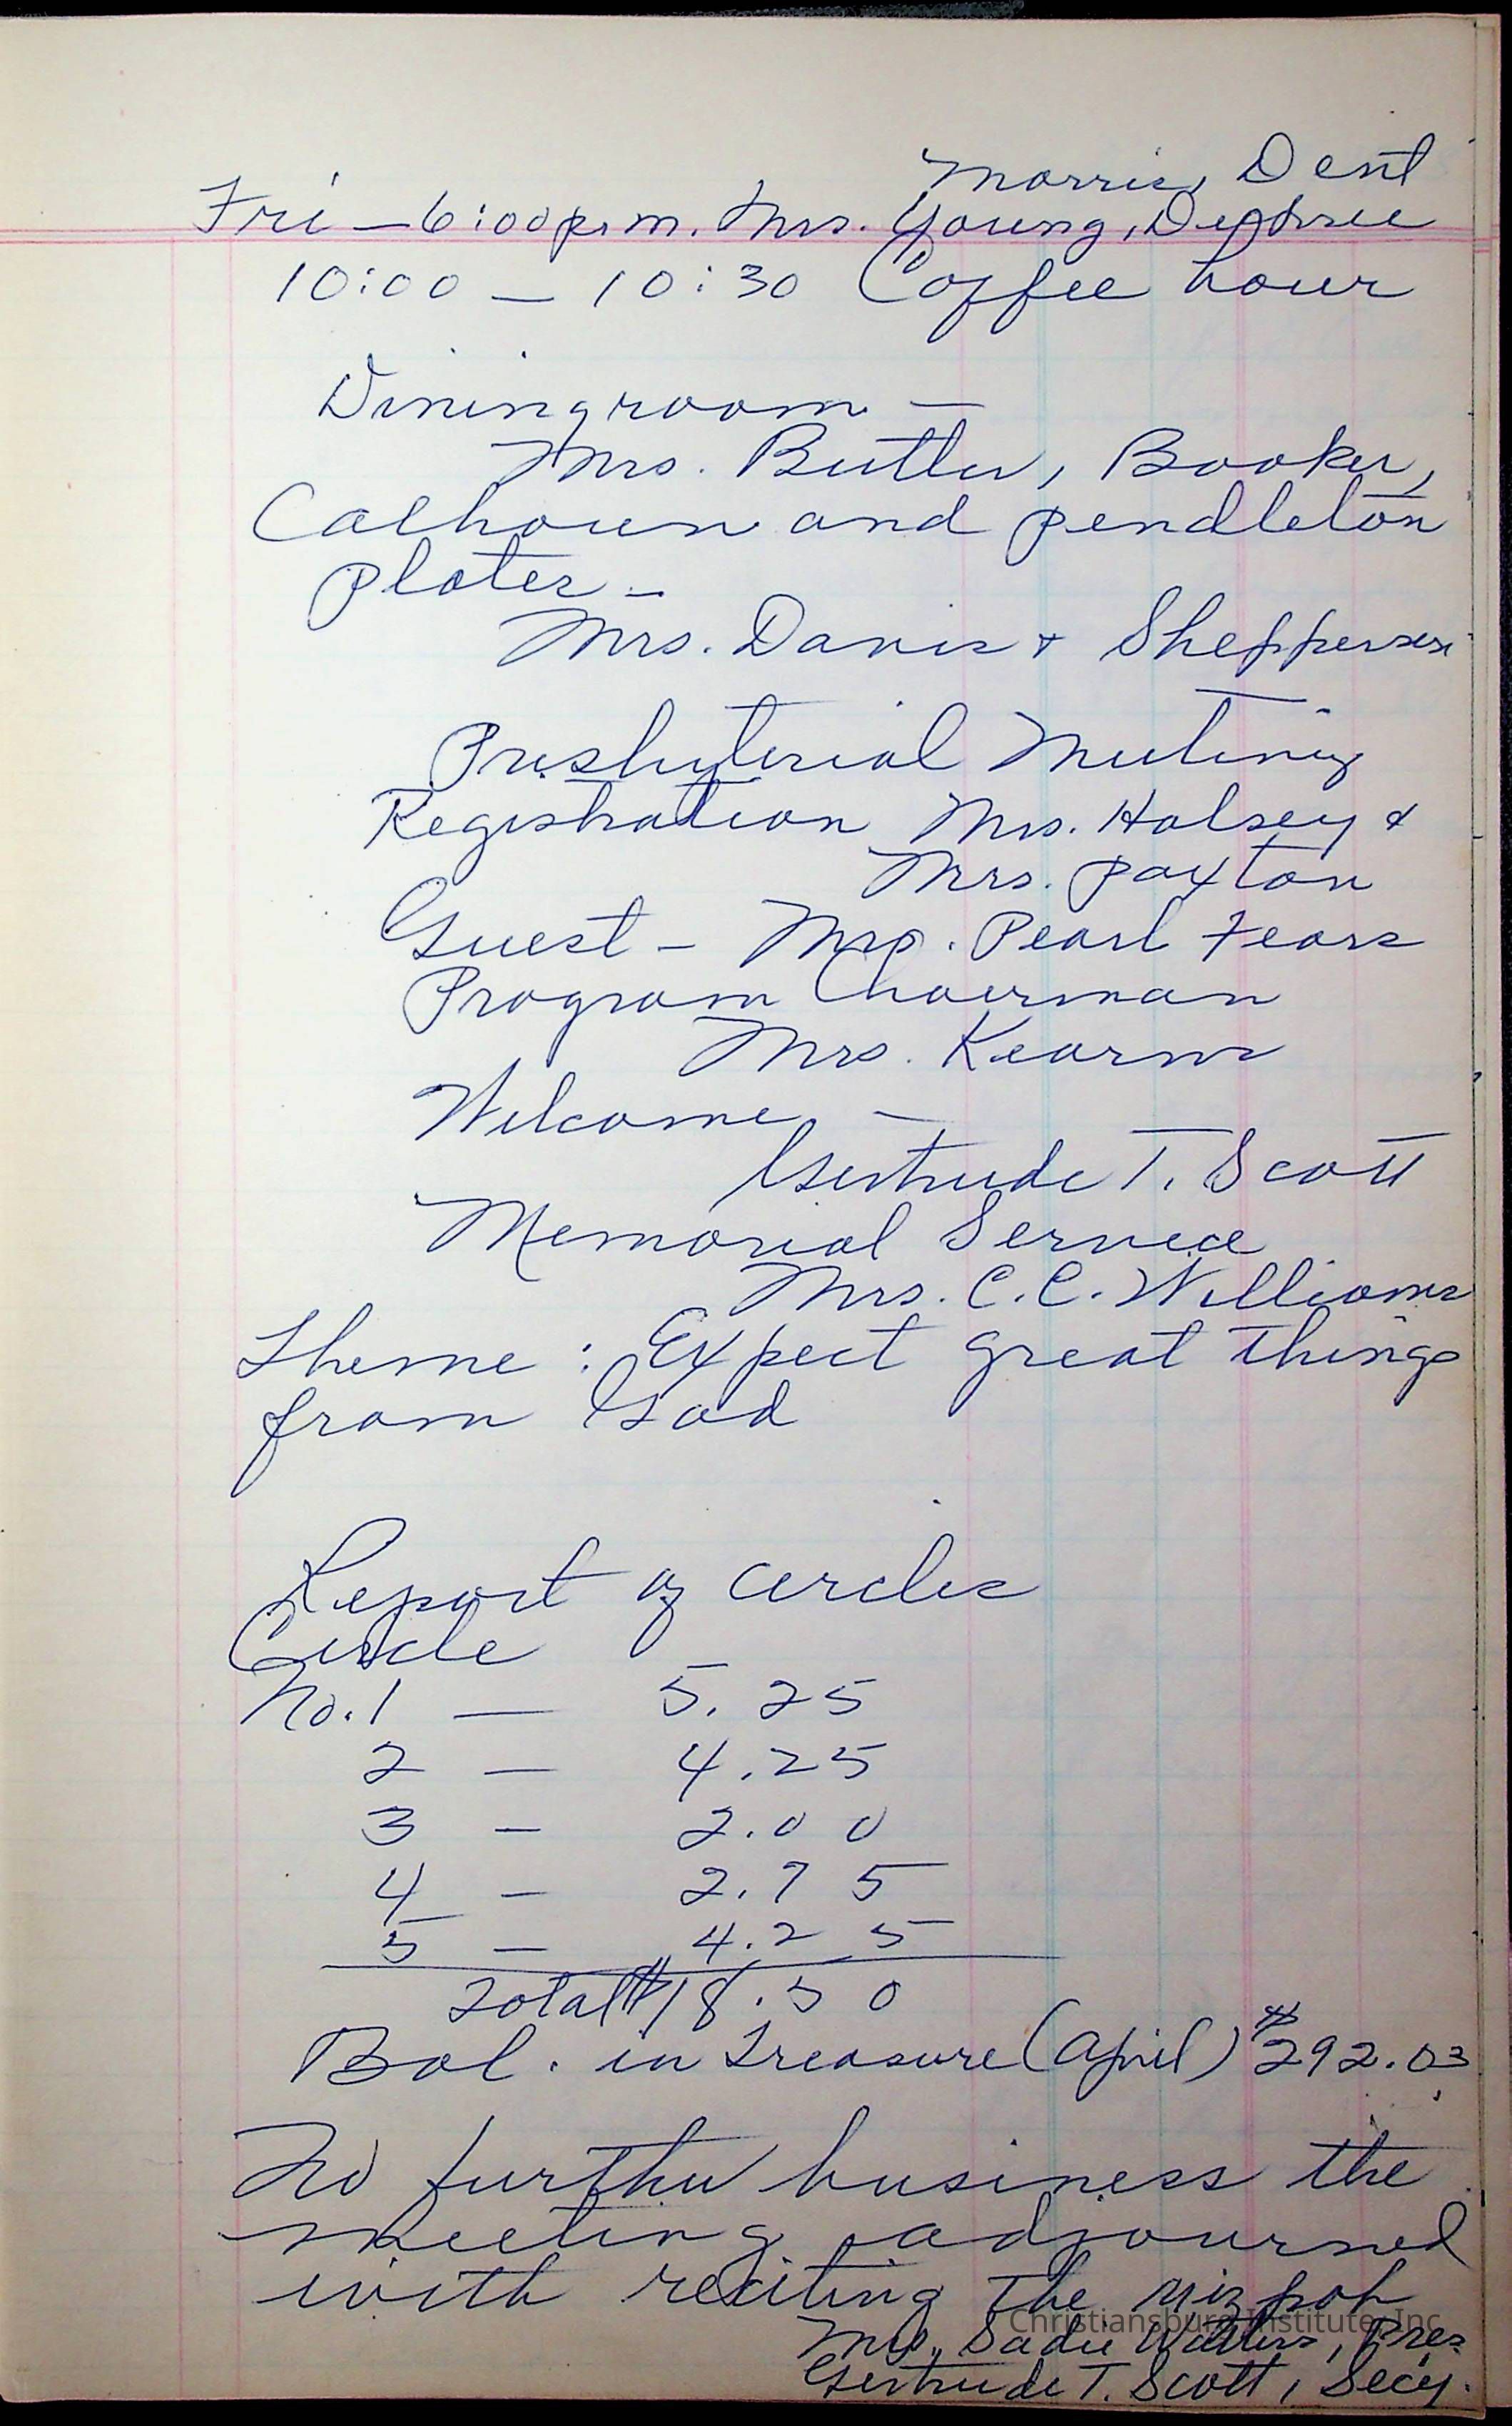 Morris, Dent
Fri - 6:00 p.m. Mrs. Young,
10:00 - 10:30 Coffee hour
Diningroom -
Mrs. Butler, Booker,
Calhoun and Pendleton
Plates -
Mrs. Davis + Shepperson
Presbyterial Meeting
Registration Mrs. Halsey &
Mrs. Paxton
Guest - Mrs. Pearl Fears
Program Chairman
Mrs. Kearns
Welcome -
Gertrude T. Scott
Memorial Service
Mrs. C.C. Williams
Theme : Expect great things
from God
Report of circles
Circle
No. 1 - 5.25
2 - 4.25
3 - 2.00
4 - 2.75
5 - 4.25
Total $18.50
Bal. in Treasure (April) $292.03
No further business the
meeting adjourned
with reciting the Mizpah
Christiansburg Institute, Inc.
Mrs. Sadie Walters, Pres.
Gertrude T. Scott, Secy.